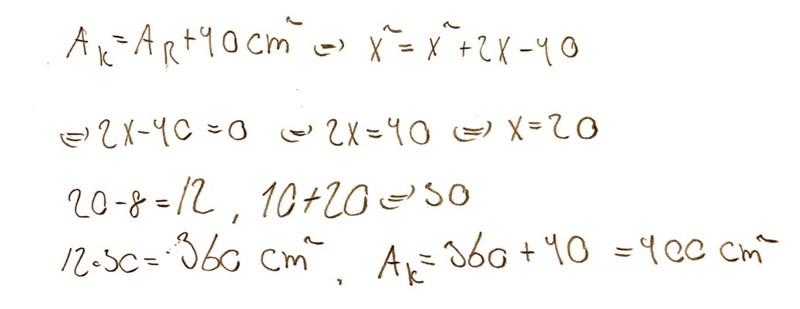 A_K = A_R + 40 cm² ⇔ x² = x² + 2x - 40
⇔ 2x - 40 = 0 ⇔ 2x = 40 ⇔ x = 20
20 - 8 = 12, 10 + 20 ⇔ 30
12 · 30 = 360 cm², A_K = 360 + 40 = 400 cm²